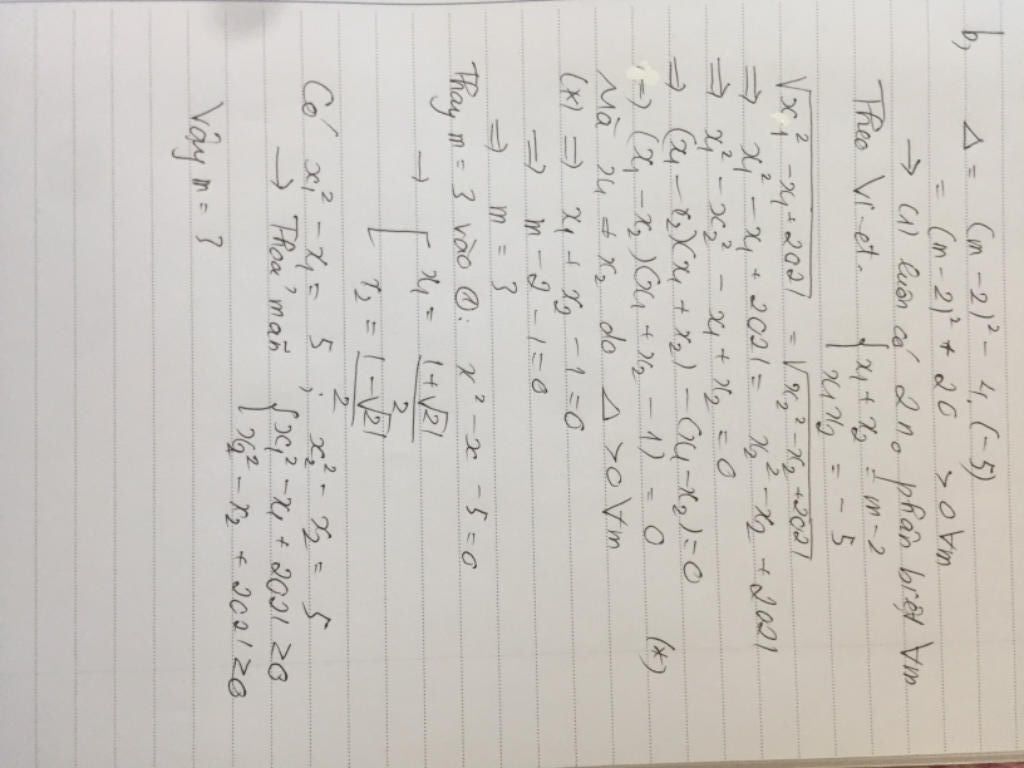 b, Δ = (m-2)² - 4.(-5)
= (m-2)² + 20 > 0 ∀m
→ (1) luôn có 2 n₀ phân biệt ∀m
Theo Vi-et: { x₁ + x₂ = m-2
x₁x₂ = -5
√(x₁² - x₁ + 2021) = √(x₂² - x₂ + 2021)
⇒ x₁² - x₁ + 2021 = x₂² - x₂ + 2021
⇒ x₁² - x₂² - x₁ + x₂ = 0
⇒ (x₁ - x₂)(x₁ + x₂) - (x₁ - x₂) = 0
⇒ (x₁ - x₂)(x₁ + x₂ - 1) = 0 (*)
Mà x₁ ≠ x₂ do Δ > 0 ∀m
(*) ⇒ x₁ + x₂ - 1 = 0
⇒ m - 2 - 1 = 0
⇒ m = 3
Thay m = 3 vào ①: x² - x - 5 = 0
→ [ x₁ = (1+√21)/2
x₂ = (1-√21)/2
Có x₁² - x₁ = 5, x₂² - x₂ = 5
→ Thoả mãn { x₁² - x₁ + 2021 ≥ 0
x₂² - x₂ + 2021 ≥ 0
Vậy m = 3